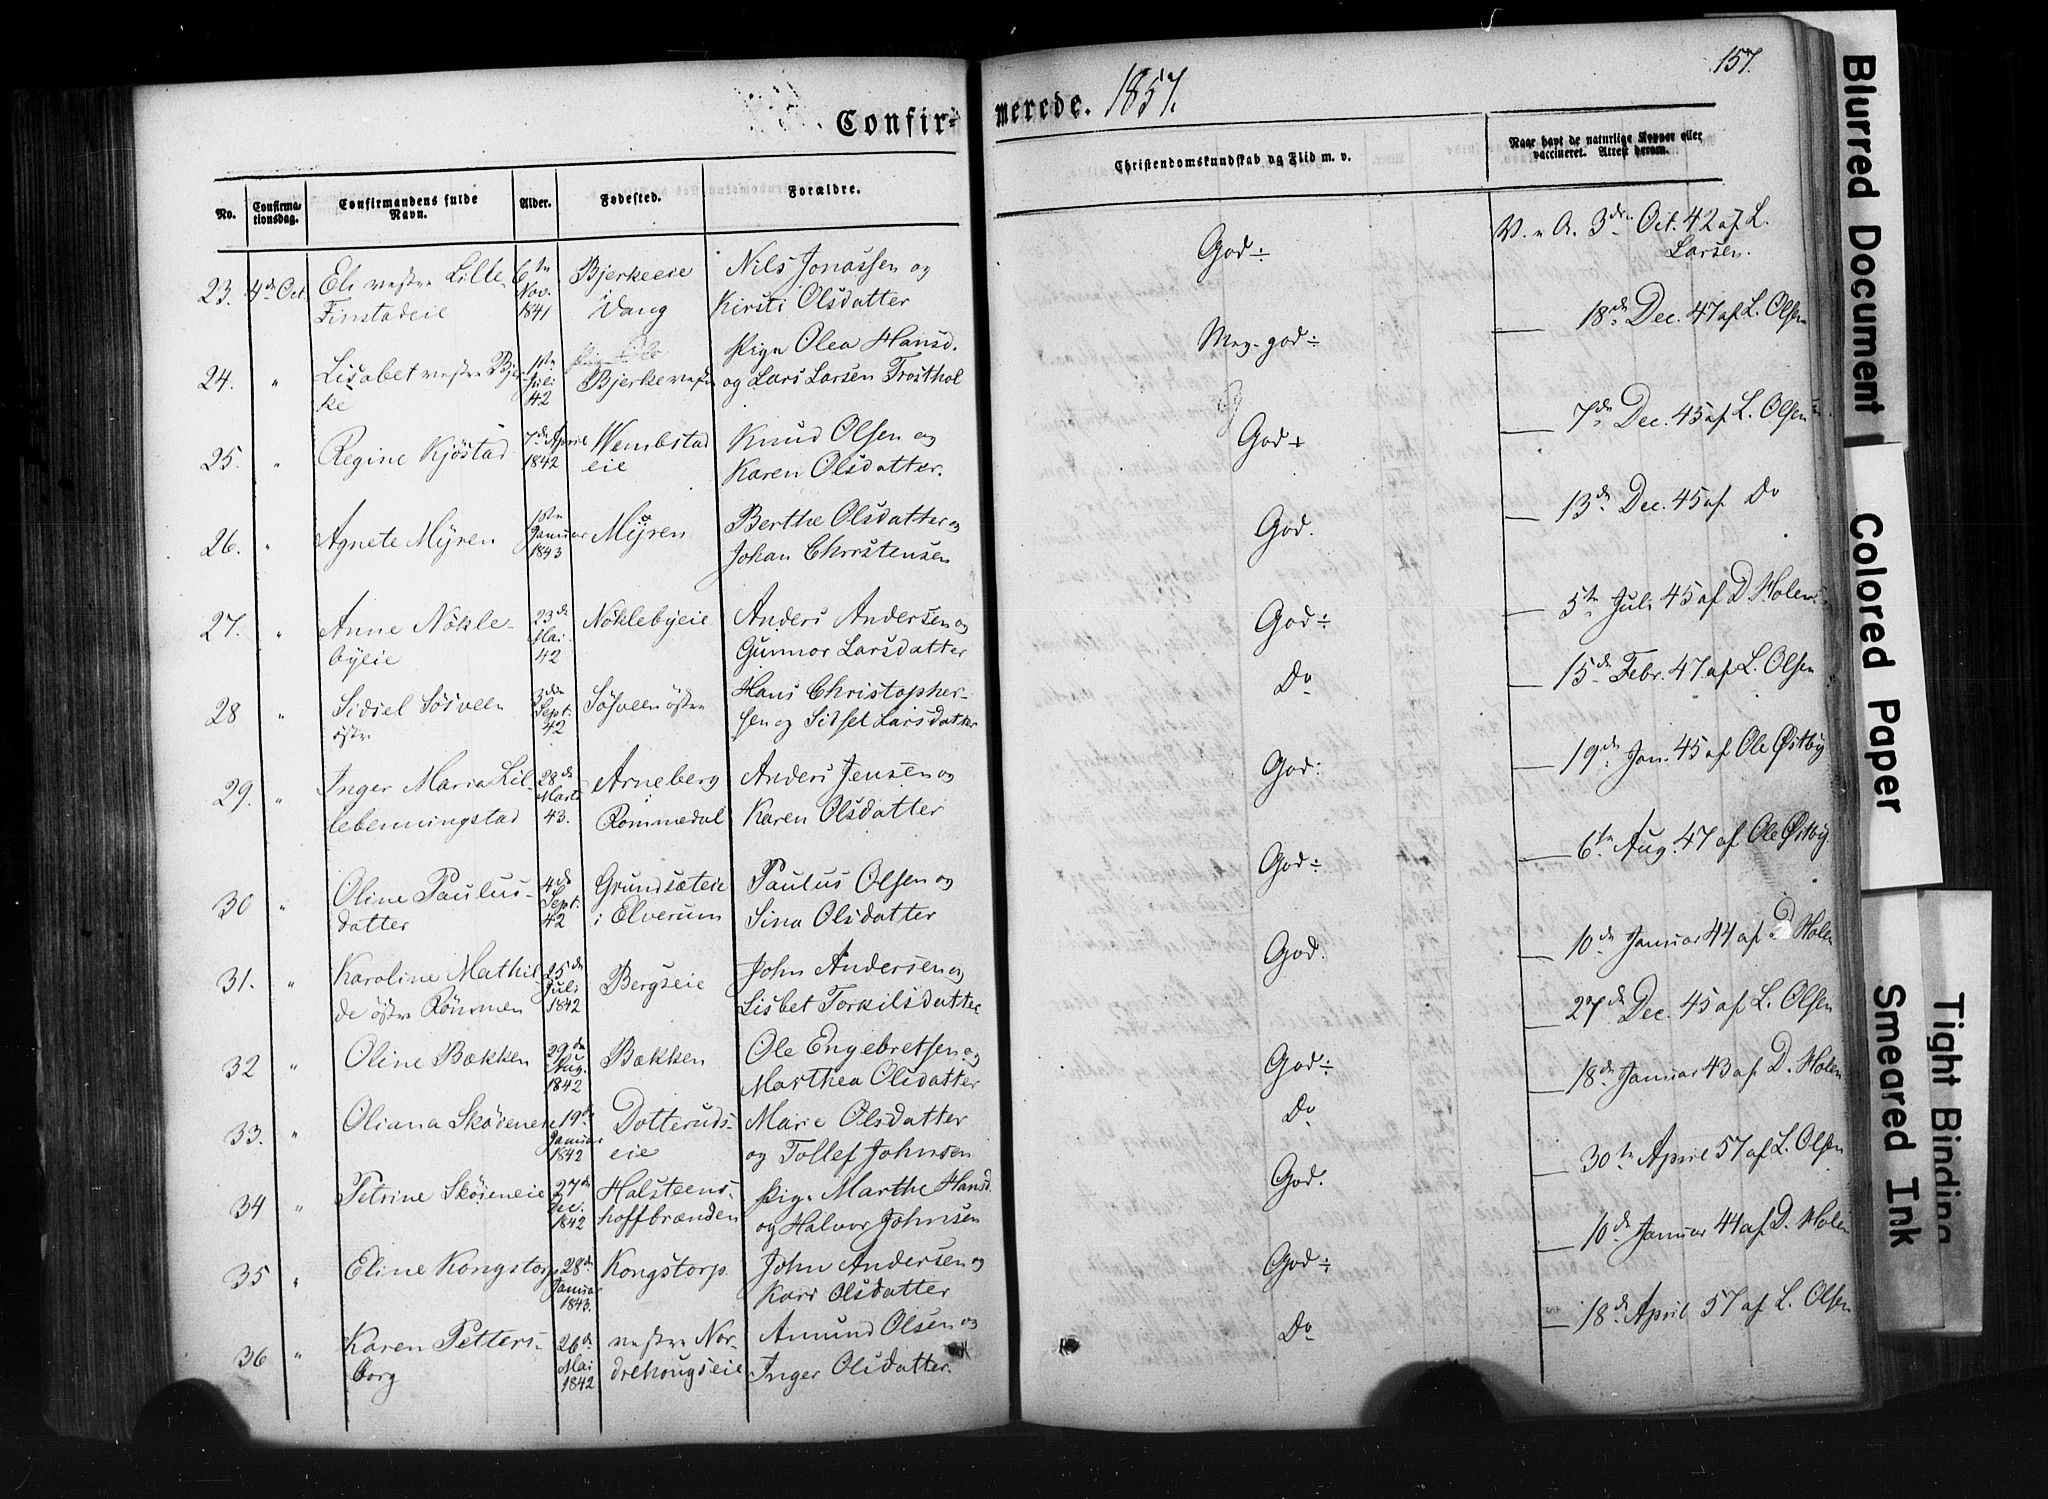 157.
Confir- merede. 1857.
No.
Confirma-
tionsdag.
Confirmandens fulde
Navn.
Alder.
Fødested.
Forældre.
Christendomskundskab og Flid m. v.
Naar havt de naturlige Kopper eller
vaccineret. Attest derom.
23. 4de Oct.
Eli vestre Lille
Finstadeie
6te
Nov.
1841
Bjerkeeie
i Vang
Nils Jonassen og
Kirsti Olsdatter
God ÷
V. v. A. 3de Oct. 42 af L.
Larsen.
24. "
Lisabet vestre Bjer
ke
1ste
Juli
42
Bjerke vestre
Pige Olea Hansd.
og Lars Larsen Trosthol
Meg. god ÷
— 18de Dec. 47 af L. Olsen
25. "
Regine Kjøstad
7de April
1842
Wembstad
eie
Knud Olsen og
Karen Olsdatter.
God +
— 7de Dec. 45 af L. Olsen
26. "
Agnete Myren
1ste
Januar
1843
Myren
Berthe Olsdatter og
Johan Christensen
God.
— 13de Dec. 45 af Do
27. "
Anne Nökle-
byeie
23de
Mai
42
Nöklebyeie
Anders Andersen og
Gunnor Larsdatter
God ÷
— 5te Juli 45 af D. Holen
28 "
Sidsel Sösveen
östre
3die
Sept.
42
Sösveen östre
Hans Christopher-
sen og Sidsel Larsdatter
Do
— 15de Febr. 47 af L. Olsen
29. "
Inger Maria Lil-
lebenningstad
28de
Marts
43.
Arneberg
i Rommedal
Anders Jensen og
Karen Olsdatter
God:
— 19de Jan. 45 af Ole Østby
30 "
Oline Paulus-
datter
4de
Sept.
42
Grundsæteie
i Elverum
Paulus Olsen og
Sina Olsdatter
God ÷
— 6te Aug. 47 af Ole Østby.
31. "
Karoline Mathil
de östre Rönnen
25de
Juli
1842
Bergseie
John Andersen og
Lisbet Torkilsdatter
God.
— 10de Januar 44 af D Holen
32 "
Oline Bækken
29de
Aug.
1842
Bækken
Ole Engebretsen og
Marthea Olsdatter
God ÷
— 27de Dec. 45 af L. Olsen
33. "
Oliana Sköieneie
19de
Januar
1842
Dotteruds-
eie
Marie Olsdatter
og Tollef Johnsen
Do
— 18de Januar 43 af D. Holen
34 "
Petrine Sköieneie
27de
Dec.
1842
Halsteens-
hoffbrænden
Pige Marthe Hansd.
og Halvor Johnsen
God.
— 30te April 57 af L. Olsen
35 "
Eline Kongstorp
28de
Januar
1843.
Kongstorp.
John Andersen og
Kari Olsdatter
God ÷
— 10de Januar 44 af D. Holen
36 "
Karen Petters-
borg
26de
Mai
1842
vestre Nor-
drehougseie
Amund Olsen og
Inger Olsdatter.
Do
— 18de April 57 af L. Olsen
Blurred Document
Colored Paper
Tight Binding
Smeared Ink